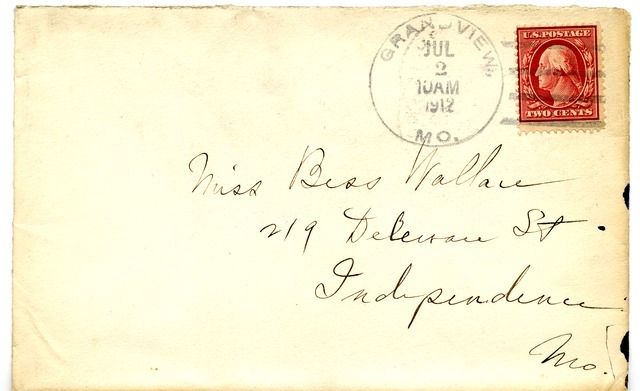 GRANDVIEW,
JUL
2
10AM
1912
MO.
U.S.POSTAGE
TWO CENTS
Miss Bess Wallace
219 Deleware St.
Independence
Mo.